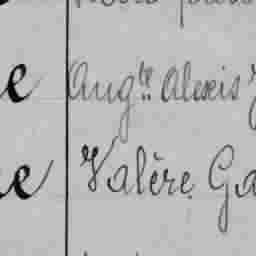 e Aug.te Alexis
e Valère Ga